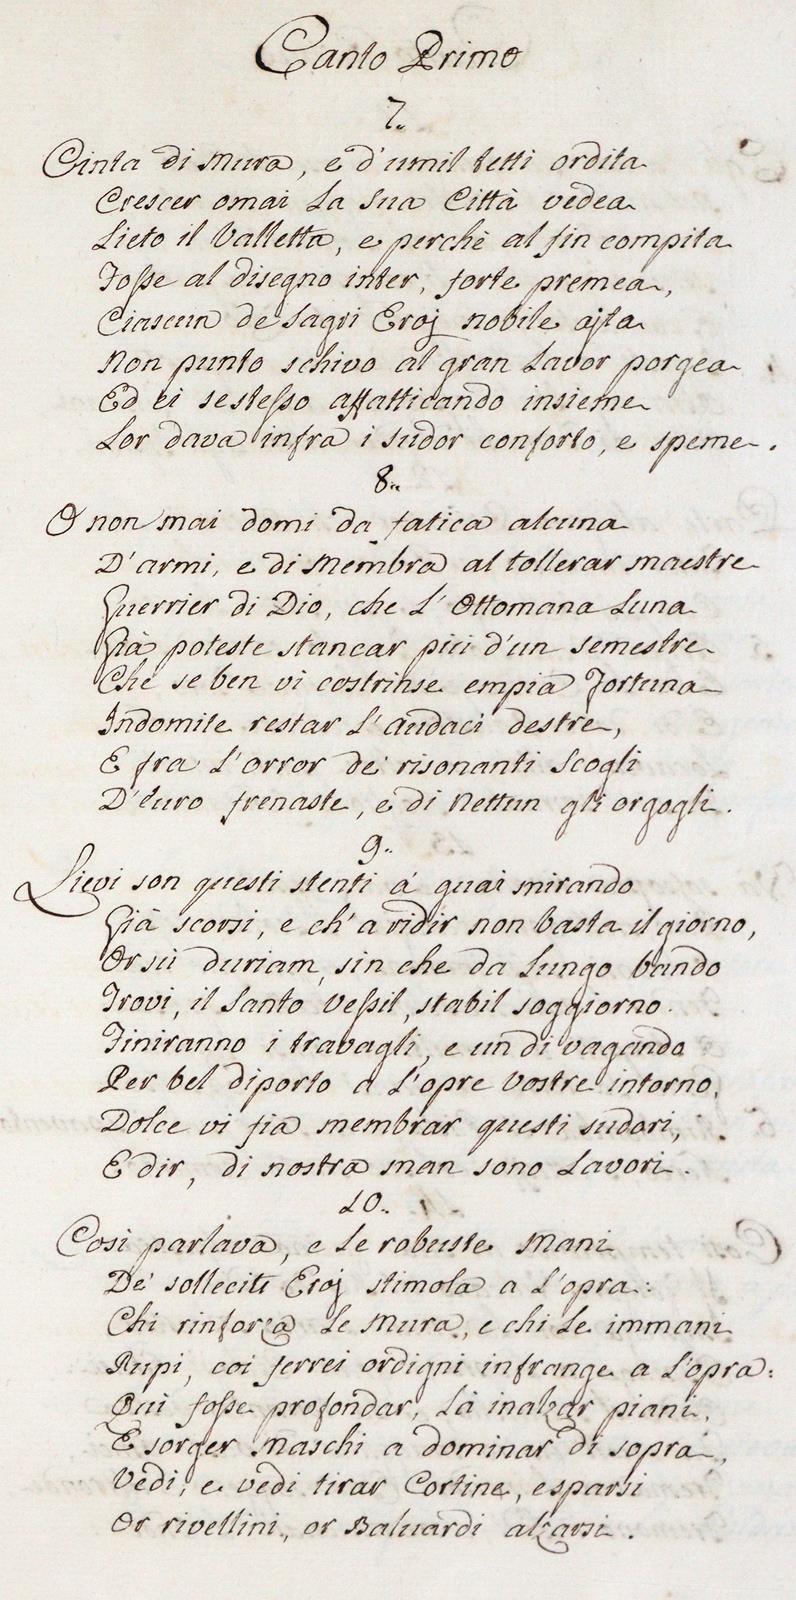 Canto Primo
7.
Cinta di Mura, e d'umil tetti ordita
Crescer omai la sua Città vedea
Lieto il Valletta, e perchè al fin compita
Fosse al disegno inter, forte premea,
Ciascun de Sagri Eroj nobile ajta
Non punto schivo al gran Lavor porgea
Ed ei sestesso affatticando insieme
Lor dava infra i sudor conforto, e speme.
8.
O non mai domi da fatica alcuna
D'armi, e di Membra al tollerar maestre
Guerrier di Dio, che l'Ottomana Luna
Già poteste stancar più d'un semestre
Che se ben vi costrinse empia Fortuna
Indomite restar l'audaci destre,
E fra l'orror de' risonanti Scogli
D'Euro frenaste, e di Nettun gli orgogli.
9.
Lievi son questi stenti á guai mirando
Già scorsi, e ch'a ridir non basta il giorno,
Or sù duriam, sin che da lungo bando
Trovi, il Santo Vessil, stabil soggiorno.
Finiranno i travagli, e un dì vagando
Per bel diporto a l'opre Vostre intorno,
Dolce vi fia membrar questi sudori,
E dir, di nostra man sono Lavori.
10.
Così parlava, e le robuste Mani
De' solleciti Eroj stimola a l'opra:
Chi rinforza le Mura, e chi le immani
Rupi, coi ferrei ordigni infrange a l'opra:
Quì fosse profondar, là inalzar piani,
E sorger Maschi a dominar di sopra,
Vedi, e vedi tirar Cortine, e sparsi
Or rivellini, or Baluardi alzarsi.